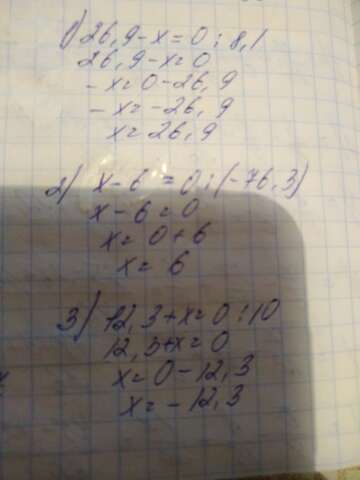 1) 26,9-x=0:8,1
26,9-x=0
-x=0-26,9
-x=-26,9
x=26,9
2) x-6=0:(-76,3)
x-6=0
x=0+6
x=6
3) 12,3+x=0:10
12,3+x=0
x=0-12,3
x=-12,3